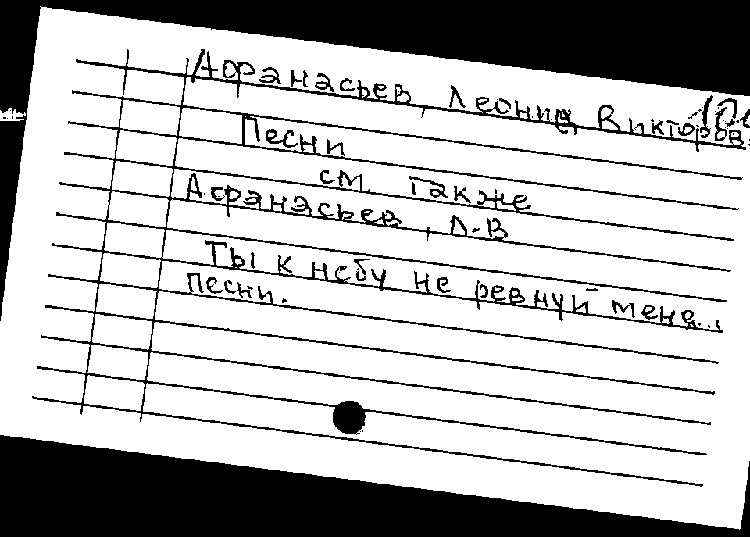 Афанасьев, Леонид Викторов.
Песни
см. также
Афанасьев, Л.В
Ты к небу не ревнуй меня...
Песни.